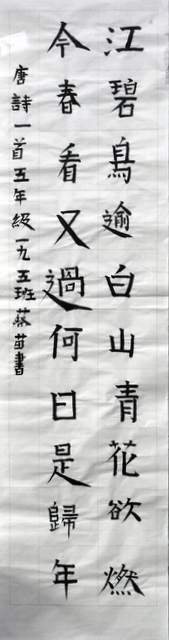 江碧鳥逾白山青花欲燃
今春看又過何日是歸年
唐詩一首五年級一九五班蔡苷書